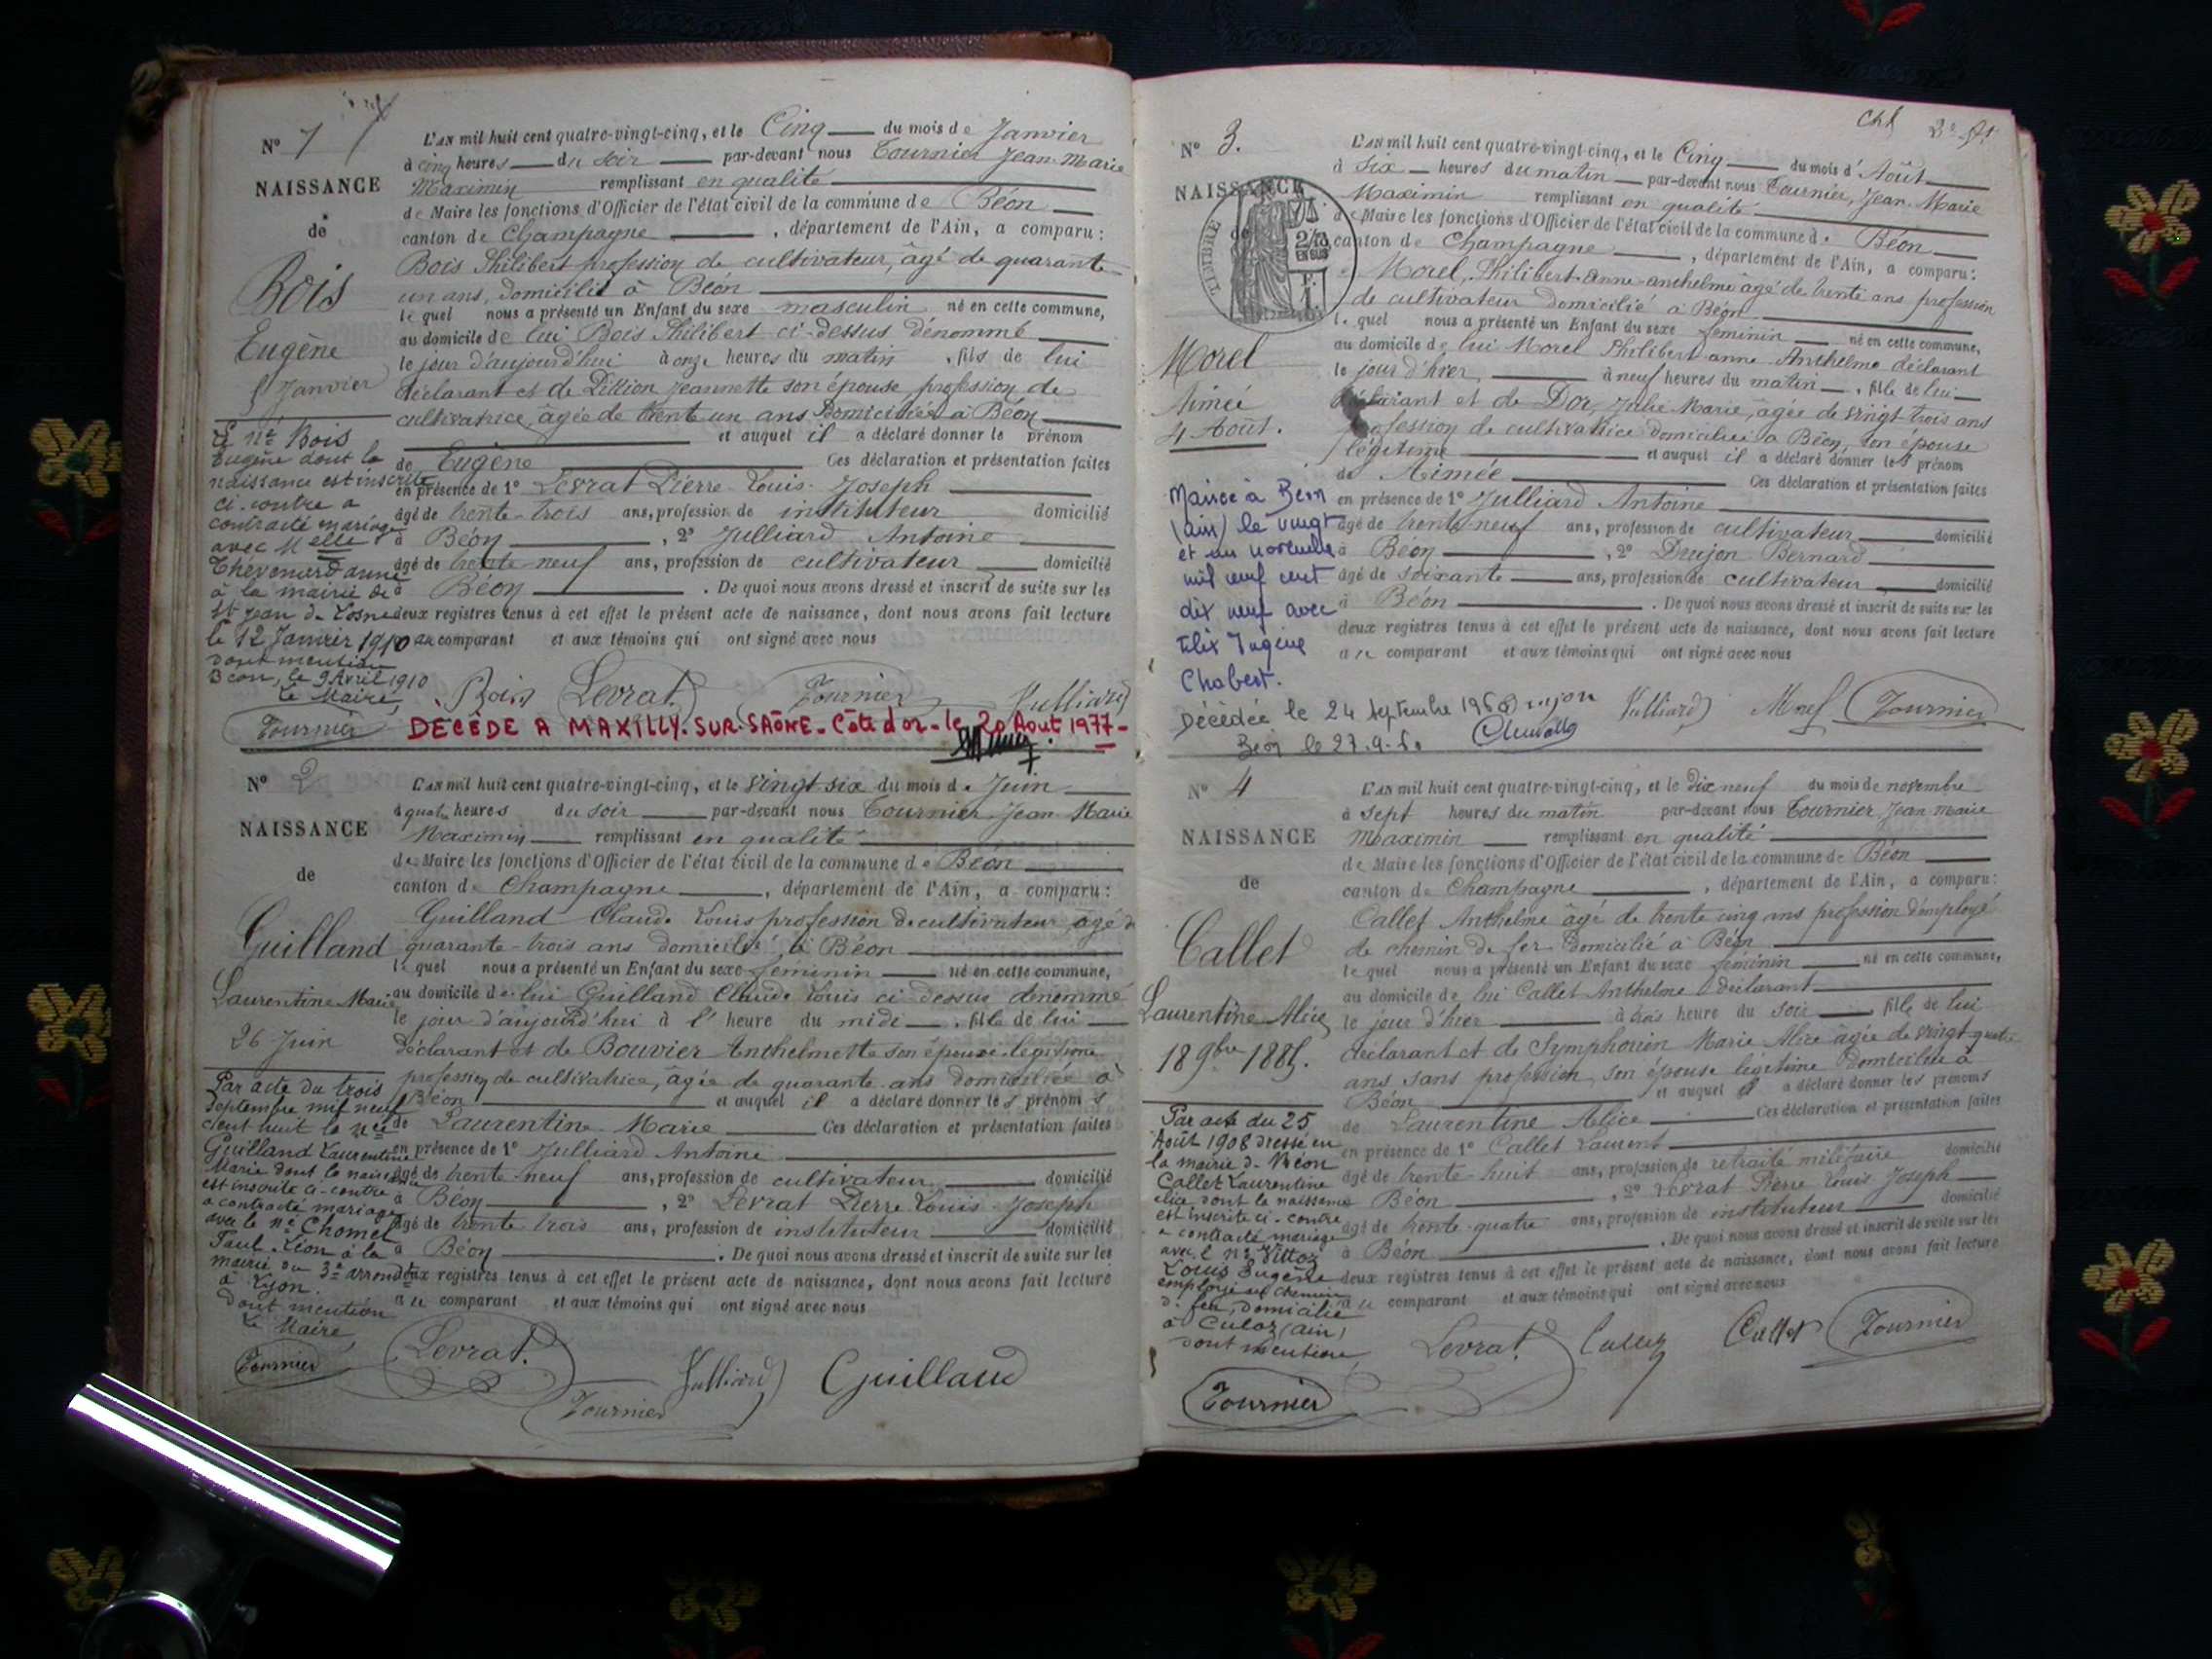 Nº 1
NAISSANCE
de
Bois
Eugène
5 Janvier
Le né Bois
Eugène dont la
naissance est inscrite
ci-contre a
contracté mariage
avec Melle
Thevenard anne
à la mairie de
St Jean de Losne
le 12 Janvier 1910
dont mention
Béon, le 9 Avril 1910
Le Maire,
Tournier
L'AN mil huit cent quatre-vingt-cinq, et le Cinq du mois de Janvier
à cinq heures du soir par-devant nous Tournier Jean-Marie
Maximin remplissant en qualité
de Maire les fonctions d'Officier de l'état civil de la commune de Béon
canton de Champagne, département de l'Ain, a comparu:
Bois Philibert profession de cultivateur, âgé de quarante
un ans, domicilié à Béon
lequel nous a présenté un Enfant du sexe masculin né en cette commune,
au domicile de lui Bois Philibert ci-dessus dénommé
le jour d'aujourd'hui à onze heures du matin, fils de lui
déclarant et de Pillion Jeannette son épouse, profession de
cultivatrice, âgée de trente un ans Domiciliée à Béon
et auquel il a déclaré donner le prénom
de Eugène Ces déclaration et présentation faites
en présence de 1º Levrat Pierre Louis Joseph
âgé de trente-trois ans, profession de instituteur domicilié
à Béon, 2º Julliard Antoine
âgé de trente-neuf ans, profession de cultivateur domicilié
à Béon. De quoi nous avons dressé et inscrit de suite sur les
deux registres tenus à cet effet le présent acte de naissance, dont nous avons fait lecture
au comparant et aux témoins qui ont signé avec nous
Bois Levrat Tournier Julliard
DÉCÉDÉ A MAXILLY-SUR-SAÔNE - Côte d'or - le 20 Aout 1977 -
Nº 2
NAISSANCE
de
Guilland
Laurentine Marie
26 Juin
Par acte du trois
Septembre mil neuf
cent huit la née
Guilland Laurentine
Marie dont la naissance
est inscrite ci-contre
a contracté mariage
avec le né Chomel
Paul Léon à la
mairie du 3e arrondt
à Lyon.
Dont mention
Le Maire,
Tournier
L'AN mil huit cent quatre-vingt-cinq, et le vingt six du mois de Juin
à quatre heures du soir par-devant nous Tournier Jean Marie
Maximin remplissant en qualité
de Maire les fonctions d'Officier de l'état civil de la commune de Béon
canton de Champagne, département de l'Ain, a comparu:
Guilland Claude Louis profession de cultivateur, âgé de
quarante-trois ans domicilié à Béon
lequel nous a présenté un Enfant du sexe féminin né en cette commune,
au domicile de lui Guilland Claude Louis ci dessus dénommé
le jour d'aujourd'hui à l'heure du midi, fille de lui
déclarant et de Bouvier Anthelmette son épouse légitime
profession de cultivatrice, âgée de quarante ans domiciliée à
Béon et auquel il a déclaré donner les prénoms
de Laurentine Marie Ces déclaration et présentation faites
en présence de 1º Julliard Antoine
âgé de trente-neuf ans, profession de cultivateur domicilié
à Béon, 2º Levrat Pierre Louis Joseph
âgé de trente trois ans, profession de instituteur domicilié
à Béon. De quoi nous avons dressé et inscrit de suite sur les
deux registres tenus à cet effet le présent acte de naissance, dont nous avons fait lecture
au comparant et aux témoins qui ont signé avec nous
Levrat. Tournier Julliard Guilland
Nº 3.
NAISSANCE
de
TIMBRE
2/10
EN SUS
Morel
Aimée
4 Août.
Mariée à Béon
(ain) le vingt
et un novembre
mil neuf cent
dix neuf avec
Félix Eugène
Chabert.
Décédée le 24 septembre 196
Béon le 27.9.
L'AN mil huit cent quatre-vingt-cinq, et le Cinq du mois d'Août
à six heures du matin par-devant nous Tournier, Jean-Marie
Maximin remplissant en qualité
de Maire les fonctions d'Officier de l'état civil de la commune de Béon
canton de Champagne, département de l'Ain, a comparu:
Morel, Philibert-anne-anthelme âgé de trente ans profession
de cultivateur domicilié à Béon
lequel nous a présenté un Enfant du sexe féminin né en cette commune,
au domicile de lui Morel Philibert-anne-Anthelme déclarant
le jour d'hier à neuf heures du matin, fille de lui
déclarant et de Dor, Julie Marie, âgée de vingt trois ans
profession de cultivatrice domiciliée à Béon, son épouse
légitime et auquel il a déclaré donner les prénom
de Aimée Ces déclaration et présentation faites
en présence de 1º Julliard Antoine
âgé de trente-neuf ans, profession de cultivateur domicilié
à Béon, 2º Drujon Bernard
âgé de soixante ans, profession de cultivateur domicilié
à Béon. De quoi nous avons dressé et inscrit de suite sur les
deux registres tenus à cet effet le présent acte de naissance, dont nous avons fait lecture
au comparant et aux témoins qui ont signé avec nous
Drujon Julliard Morel Tournier
Nº 4
NAISSANCE
de
Callet
Laurentine Alice
18 9bre 1885.
Par acte du 25
Août 1908 dressé en
la mairie de Béon
Callet Laurentine
alice dont la naissance
est inscrite ci-contre
a contracté mariage
avec le né Vittoz
Louis Eugène
employé au chemin
de fer, domicilié
à Culoz (ain)
dont mention
Tournier
L'AN mil huit cent quatre-vingt-cinq, et le dix neuf du mois de novembre
à sept heures du matin par-devant nous Tournier Jean Marie
Maximin remplissant en qualité
de Maire les fonctions d'Officier de l'état civil de la commune de Béon
canton de Champagne, département de l'Ain, a comparu:
Callet Anthelme âgé de trente cinq ans profession d'employé
de chemin de fer domicilié à Béon
lequel nous a présenté un Enfant du sexe féminin né en cette commune,
au domicile de lui Callet Anthelme déclarant
le jour d'hier à trois heure du soir, fille de lui
déclarant et de Symphorien Marie Alice âgée de vingt quatre
ans, sans profession, son épouse légitime domiciliée à
Béon et auquel il a déclaré donner les prénoms
de Laurentine Alice Ces déclaration et présentation faites
en présence de 1º Callet Laurent
âgé de trente-huit ans, profession de retraité militaire domicilié
à Béon, 2º Levrat Pierre Louis Joseph
âgé de trente-quatre ans, profession de instituteur domicilié
à Béon. De quoi nous avons dressé et inscrit de suite sur les
deux registres tenus à cet effet le présent acte de naissance, dont nous avons fait lecture
au comparant et aux témoins qui ont signé avec nous
Levrat. Callet Callet Tournier